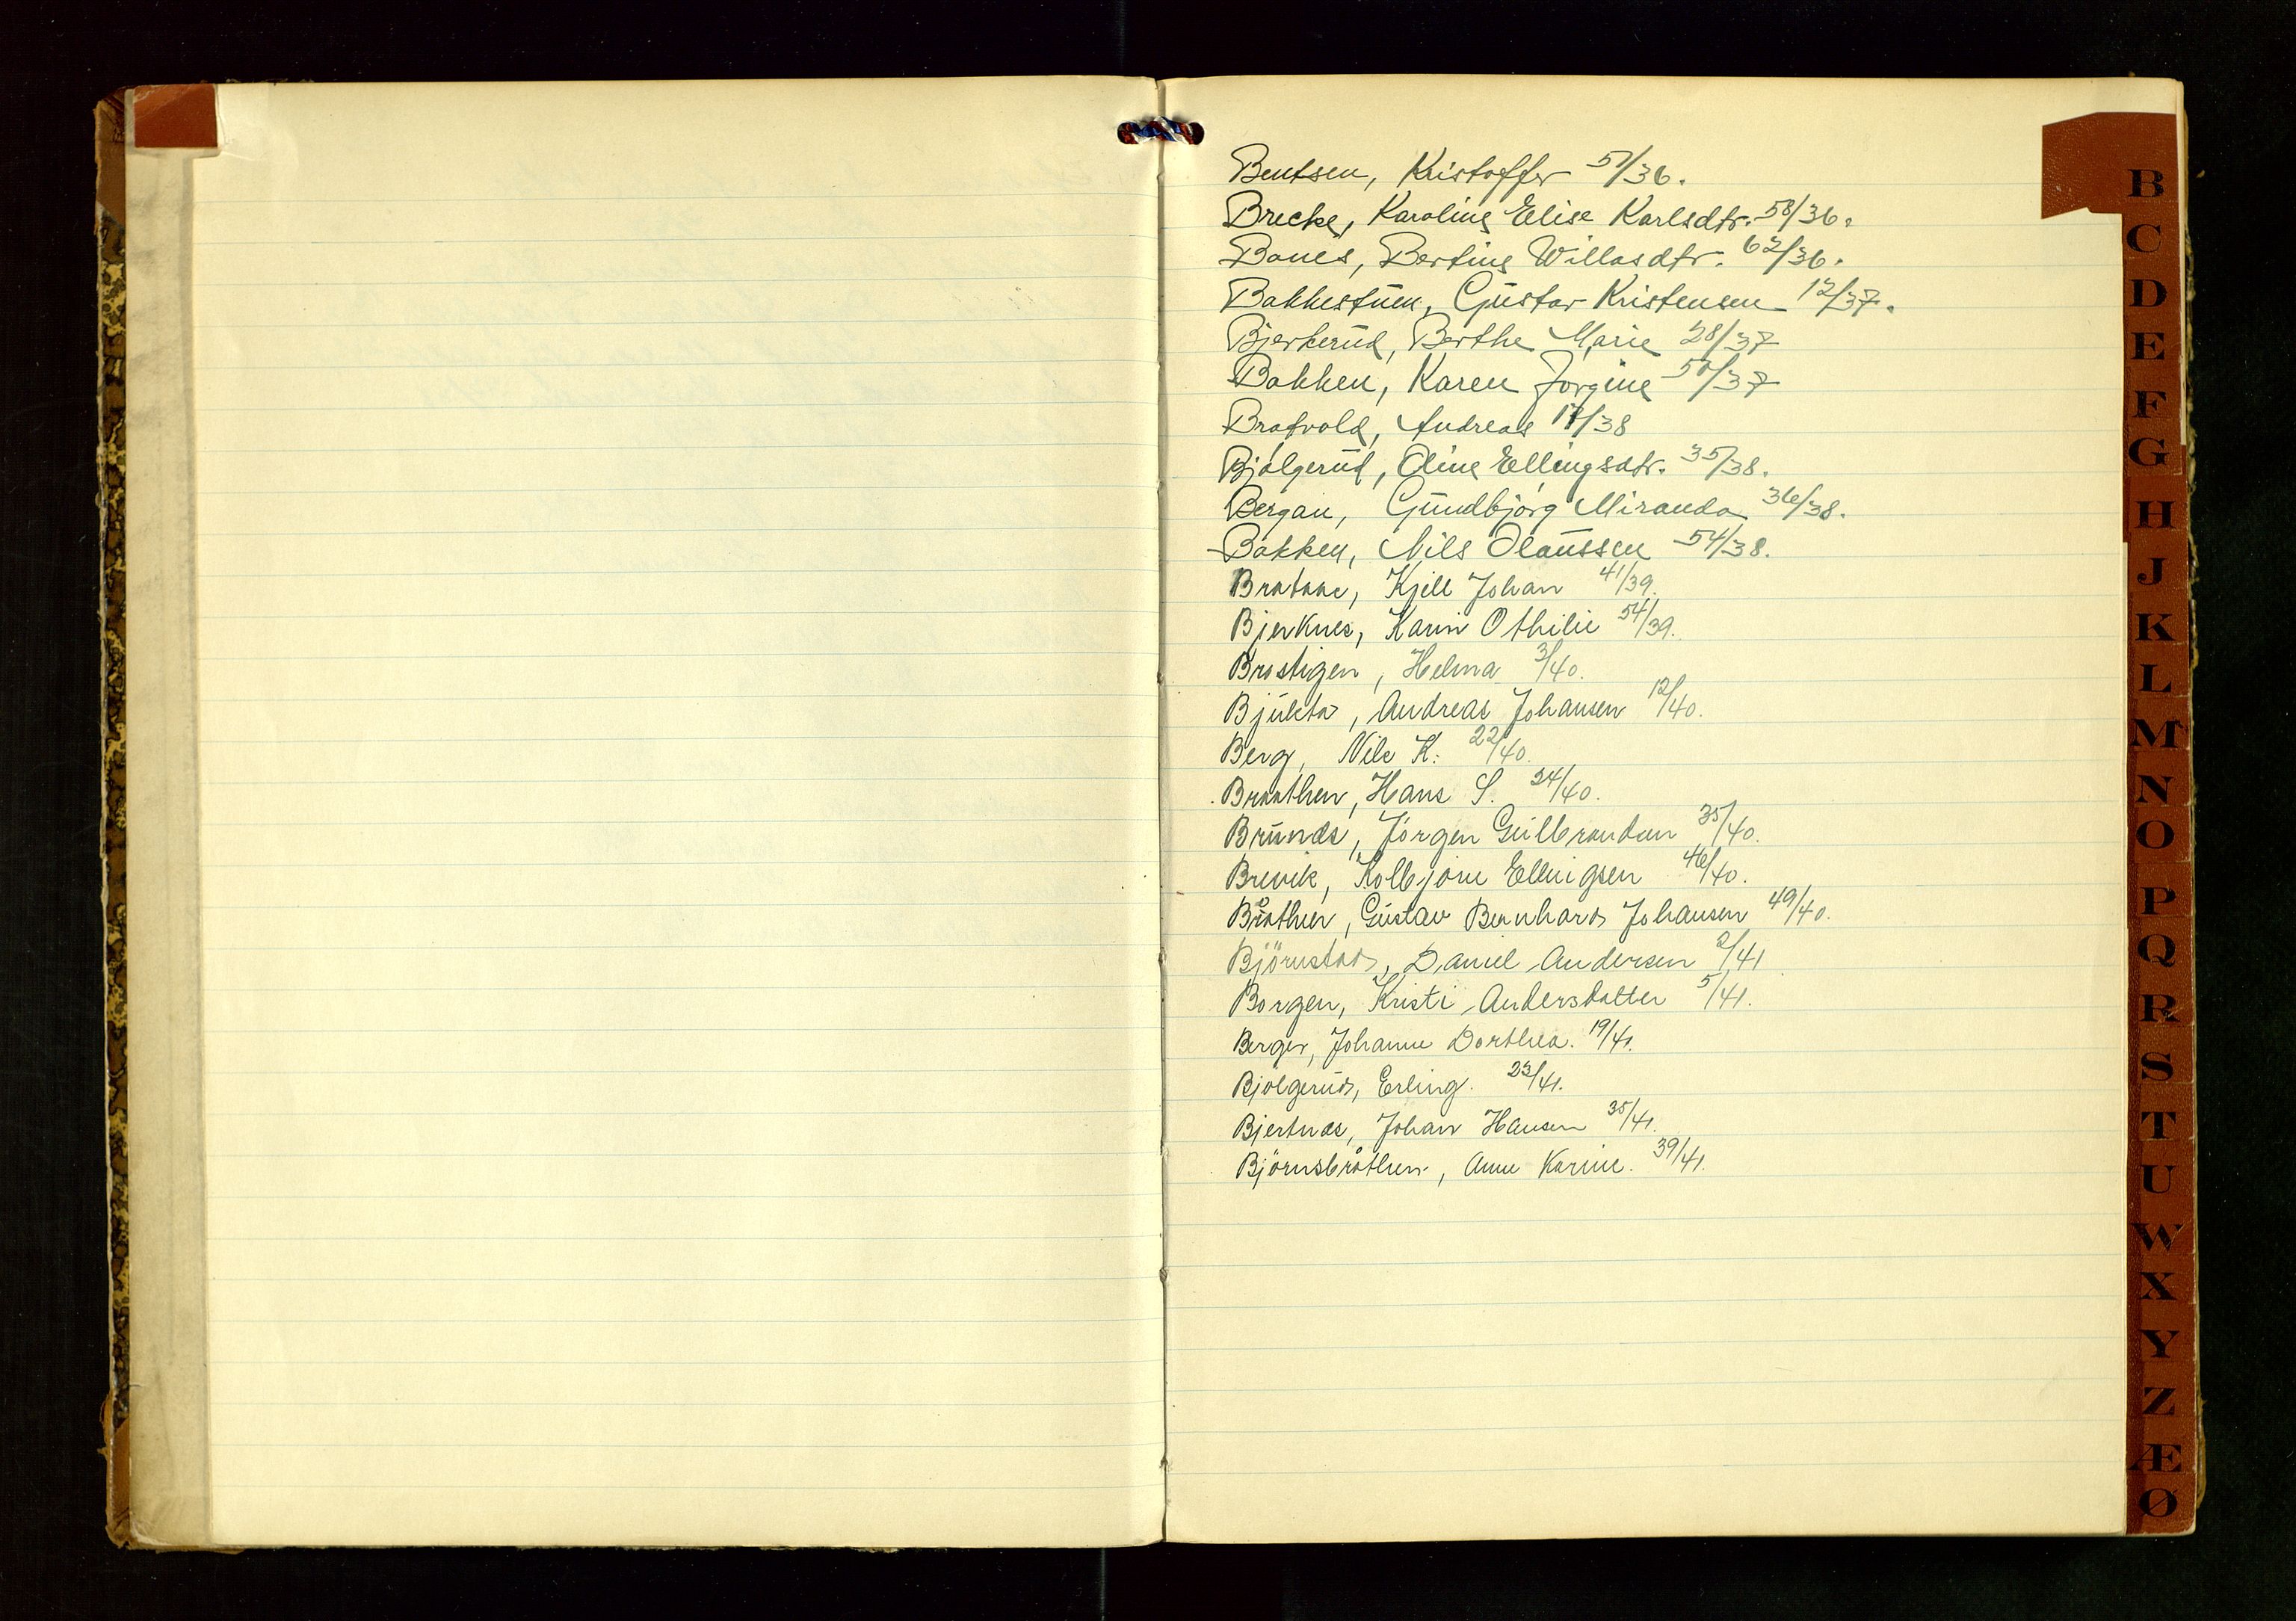 Bentsen, Kristoffer 57/36.
Brecke, Karoline Elise Karlsdtr. 58/36.
Bones, Bertine Willasdtr. 62/36.
Bakkestuen, Gustav Kristensen 12/37.
Bjerkerud, Berthe Marie 28/37
Bakken, Karen Jorgine 50/37
Bratvold, Andreas 17/38
Bjølgerud, Oline Ellingsdtr. 35/38.
Bergan, Gundbjørg Miranda 36/38.
Bakken, Nils Olaussen 54/38.
Kjell Johan 41/39.
Bjerknes, Karin Othilie 54/39.
Brostigen, Helma 3/40.
Bjukta, Andreas Johansen 12/40.
Berg, Nils K. 22/40.
Braathen, Hans S. 24/40.
Brunæs, Jørgen Gulbrandsen 35/40.
Brevik, Kolbjørn Ellingsen 46/40.
Bråthen, Gustav Bernhard Johansen 49/40.
Björnstad, Daniel Andersen 2/41
Borgen, Kristi Andersdatter 5/41.
Berger, Johanne Dorthea. 19/41.
Bjølgerud, Erling. 23/41.
Bjertnæs, Johan Hansen 35/41.
Björnsbråthen, Anne Karine. 39/41.
B
C
D
E
F
G
H
J
K
L
M
N
O
P
Q
R
S
T
U
W
X
Y
Z
Æ
Ø